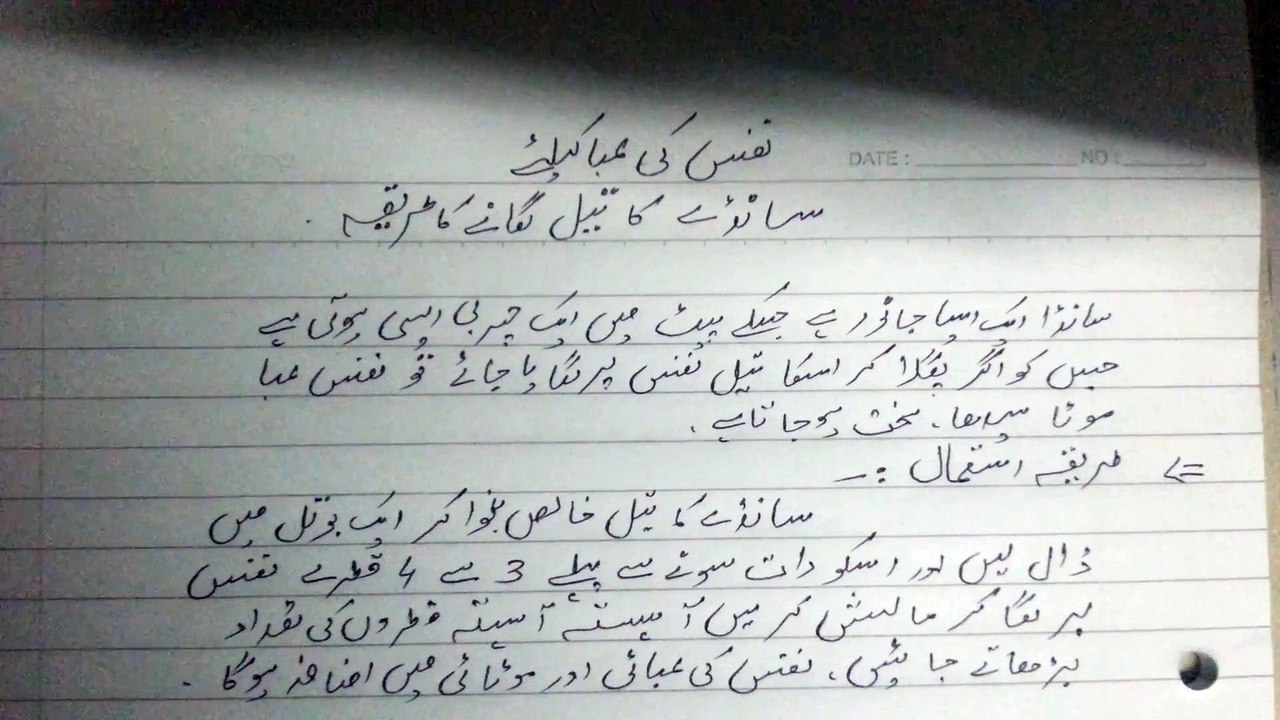 نفس کی لمبا کیلئے
DATE : NO :
سانڈے کا تیل لگانے کا طریقہ .
سانڈا ایک ایسا جانور ہے جسکے پیٹ میں ایک چربی ایسی ہوتی ہے
جس کو اگر پگلا کر اسکا تیل نفس پر لگایا جائے تو نفس لمبا
موٹا سیدھا، سخت ہوجاتا ہے .
<= طریقہ استعمال :-
سانڈے کا تیل خالص نکلوا کر ایک بوتل میں
ڈال لیں اور اسکو رات سونے سے پہلے 3 سے 4 قطرے نفس
پر لگا کر مالیش کریں آہستہ آہستہ قطروں کی تعداد
بڑھاتے جائیں، نفس کی لمبائی اور موٹائی میں اضافہ ہوگا .